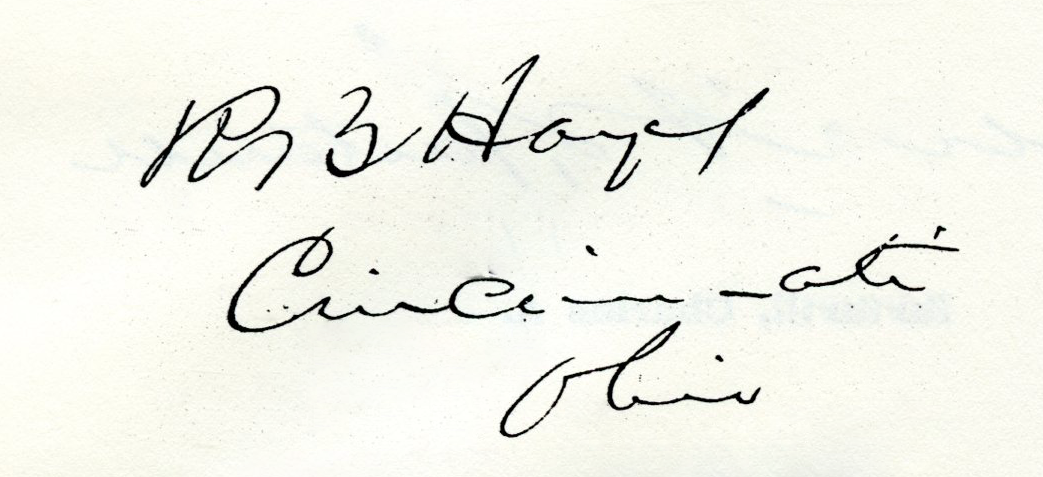 R B Hayes
Cincinnati
Ohio